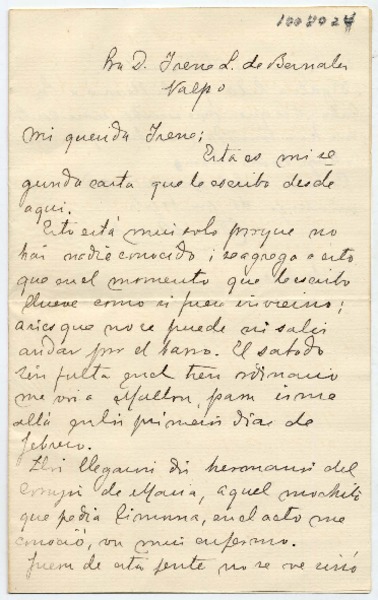 1008024
Sra D. Irene L. de Bernales
Valpo
Mi querida Irene;
Esta es mi se
gunda carta que le escribo desde
aqui.
Esto está mui solo porque no
hai nadie conocido i se agrega a esto
que en el momento que le escribo
llueve como si fuera invierno;
asies que no se puede ni salir
andar por el barro. El sabado
sin falta en el tren ordinario
me voi a Multon, para irme
allá en los primeros dias de
febrero.
Ahi llegaron dos hermanos del
de Maria, aquel mochito
que pedia limosna, en el acto me
conoció, va mui enfermo.
Fuera de esta jente no se ve sinó